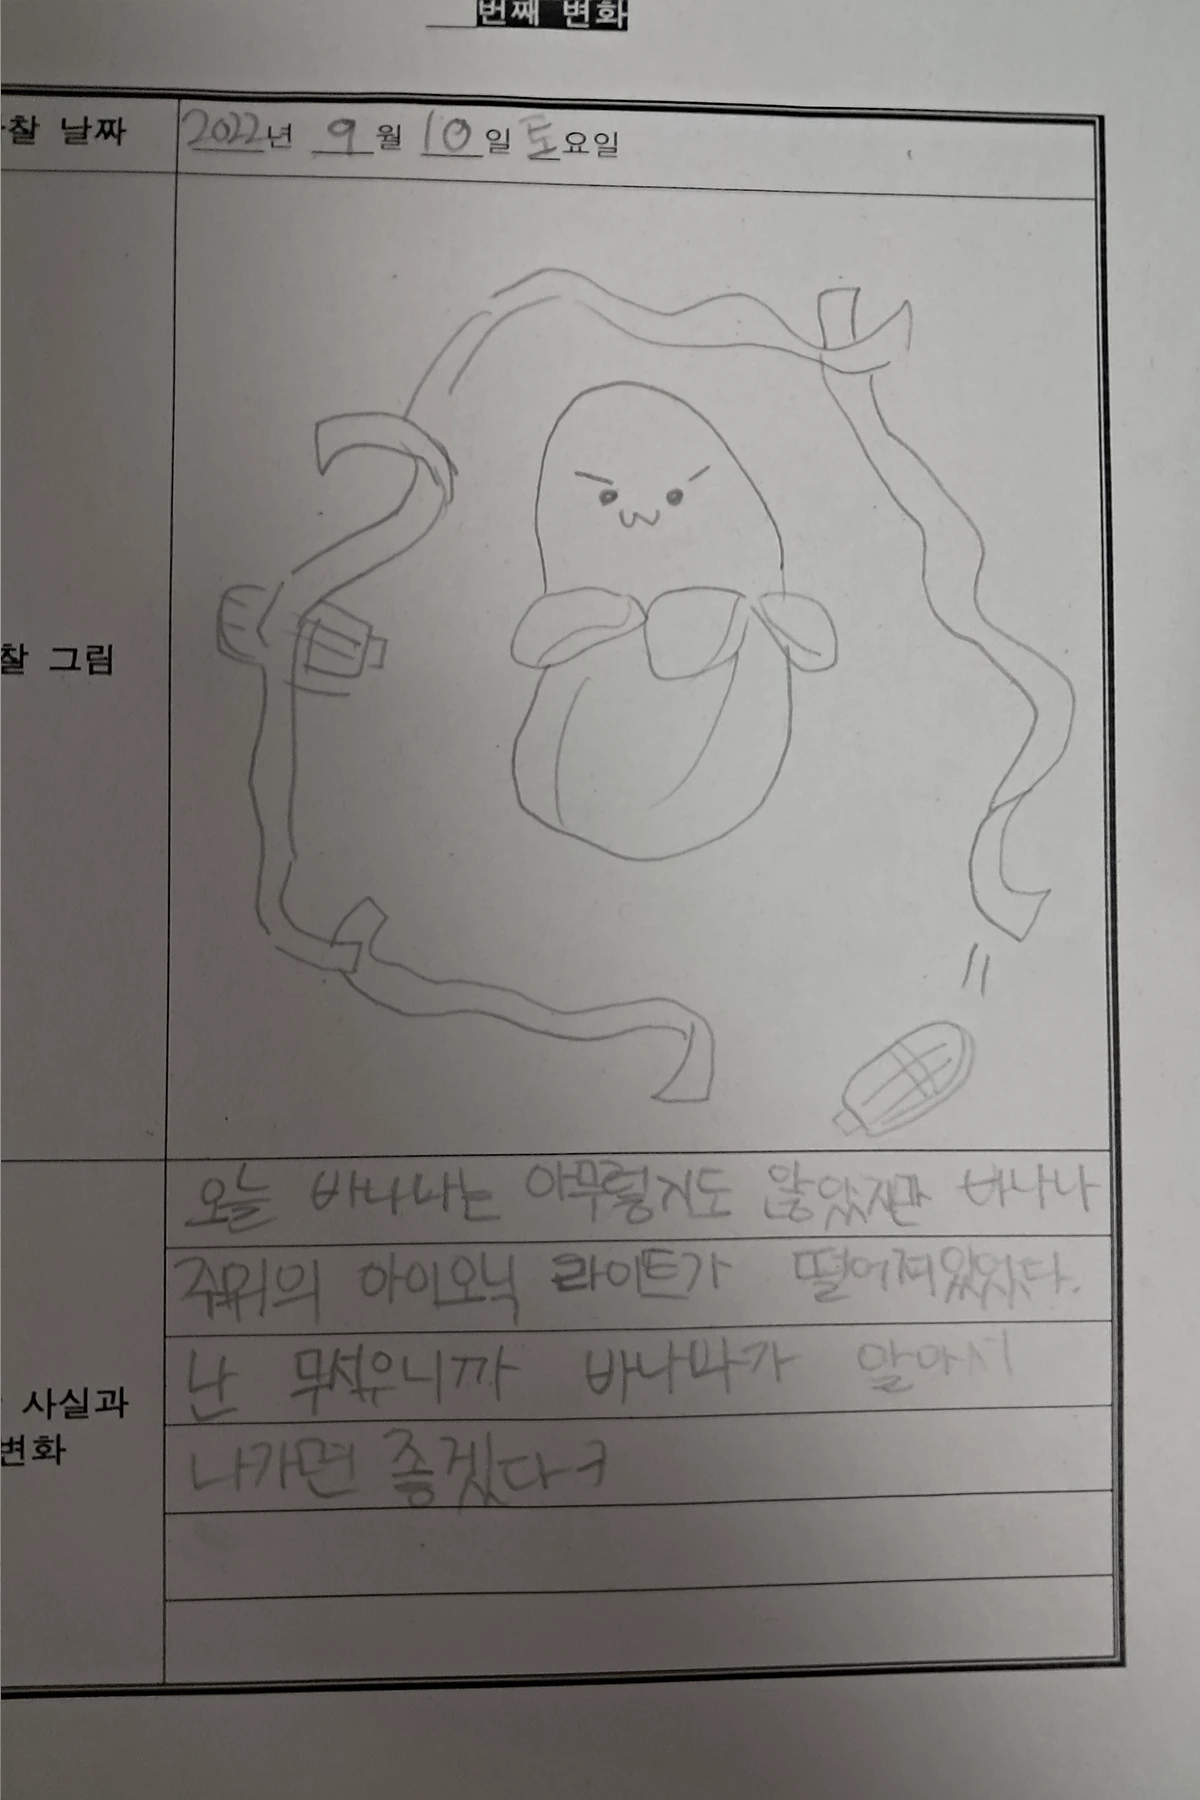 번째 변화
찰 날짜 2022년 9월 10일 토요일
찰 그림
오늘 바나나는 아무렇지도 않았지만 바나나
주위의 아이오닉 라이트가 떨어져있었다.
난 무서우니까 바나나가 알아서
나가면 좋겠다ㅋ
사실과
변화